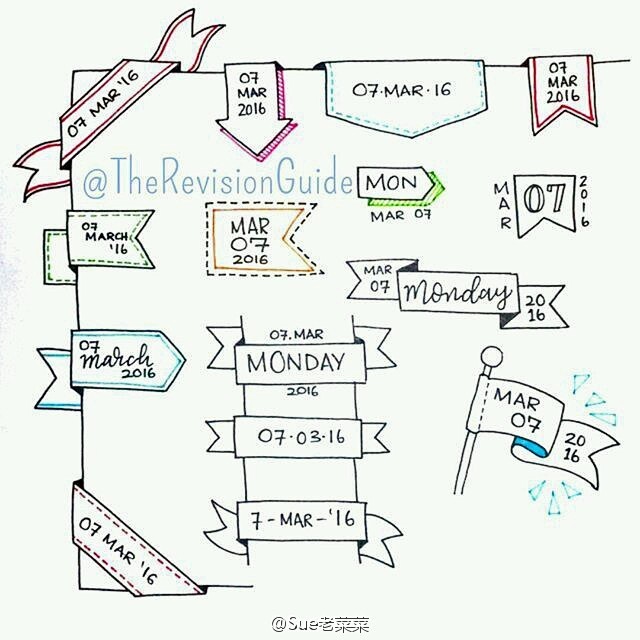 07 MAR '16
07
MAR
2016
07·MAR·16
07
MAR
2016
@TheRevisionGuide
MON
MAR 07
MAR
07
2016
07
MARCH
'16
MAR
07
2016
MAR
07
Monday
20
16
07
march
2016
07.MAR
MONDAY
2016
MAR
07
20
16
07·03·16
7-MAR-'16
07 MAR '16
@Sue老菜菜